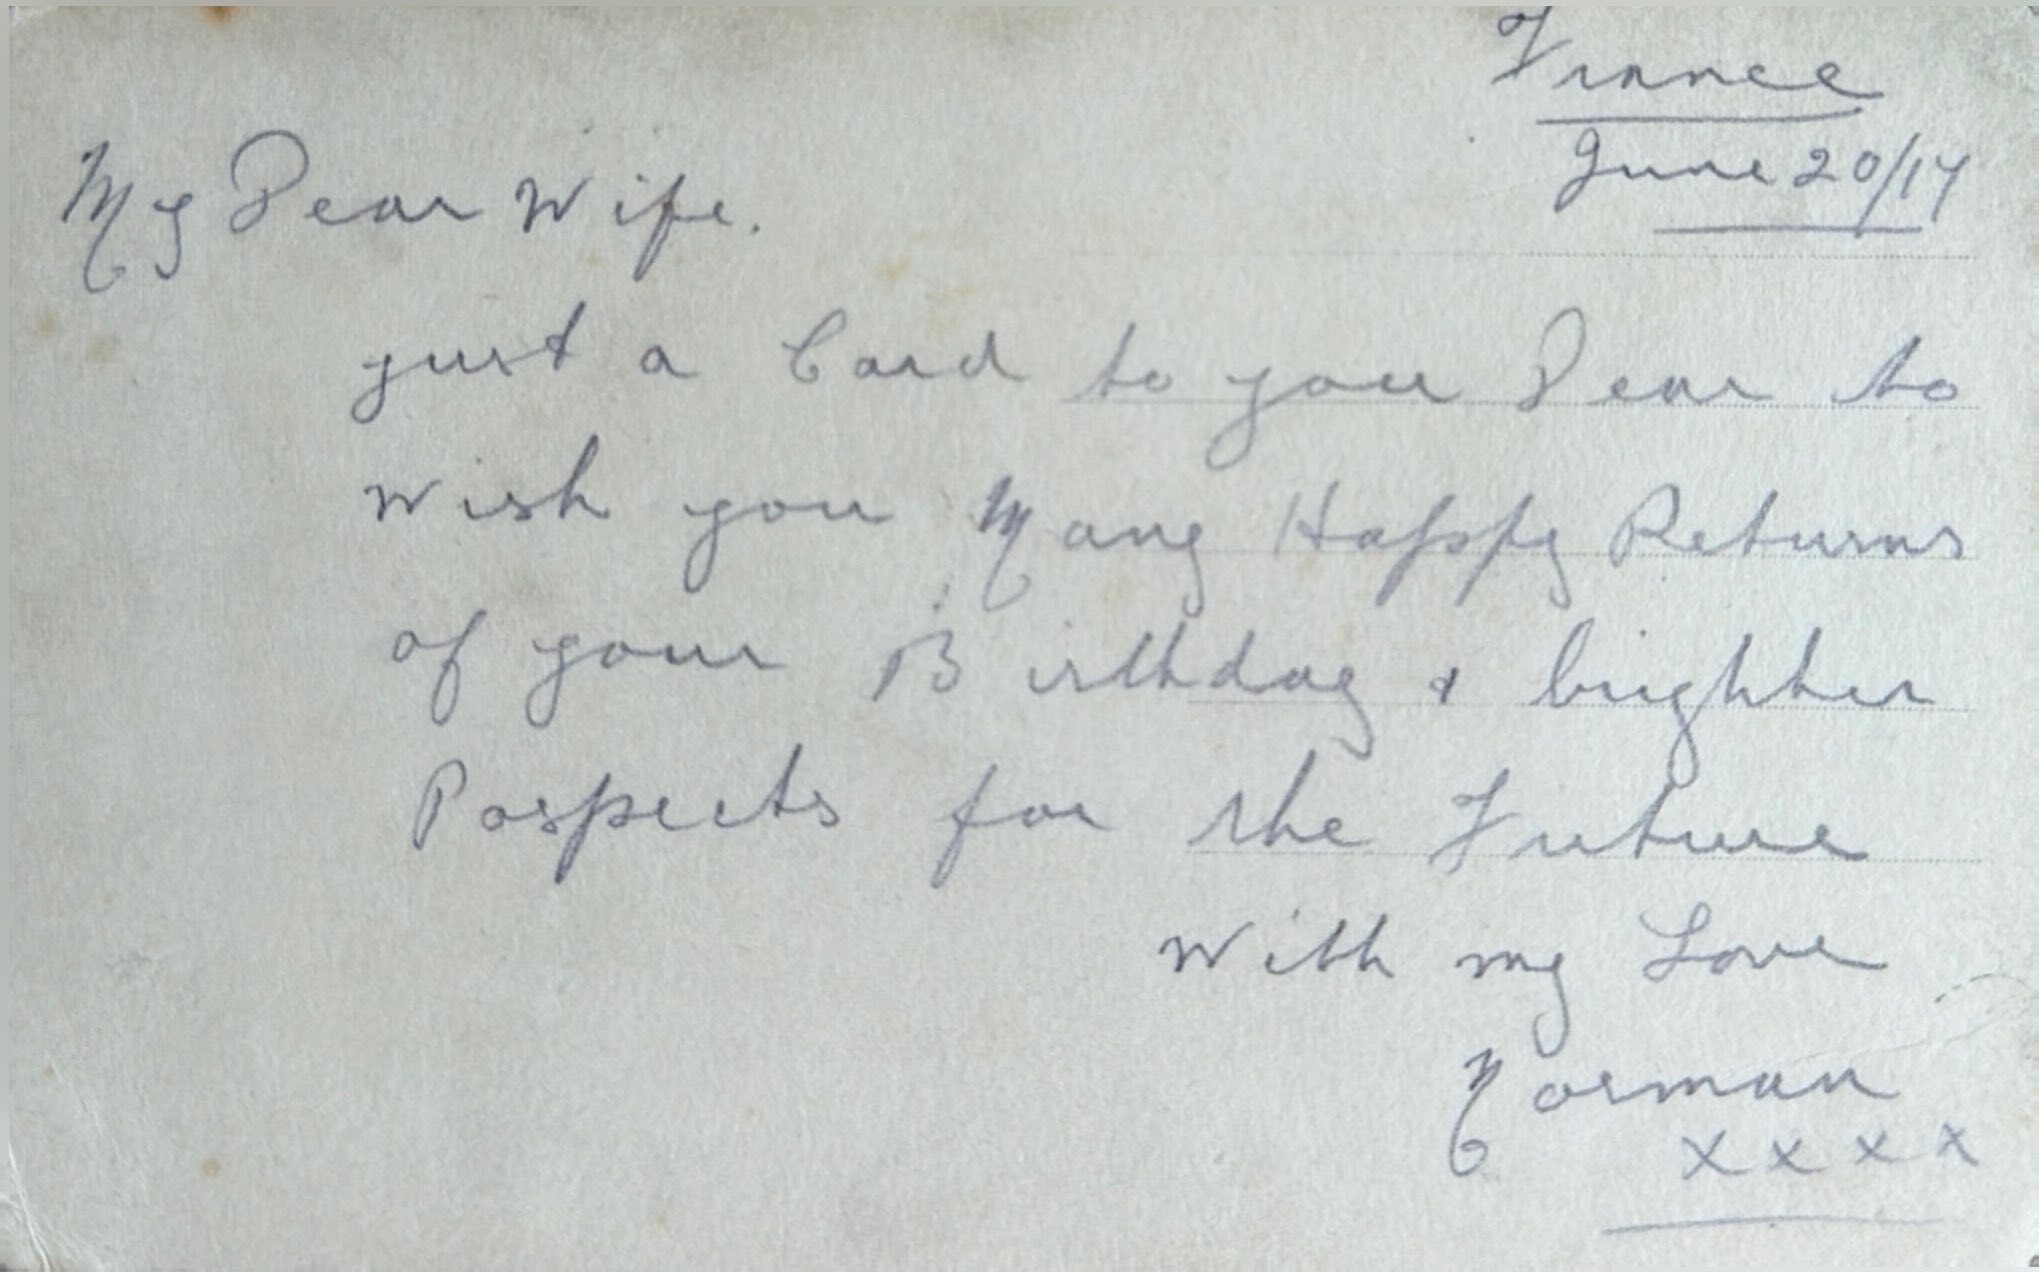 France
June 20/17
My Dear Wife.
just a Card to you Dear to
Wish you Many Happy Returns
of your Birthday & brighter
Pospects for the Future
With my Love
Norman
x x x x